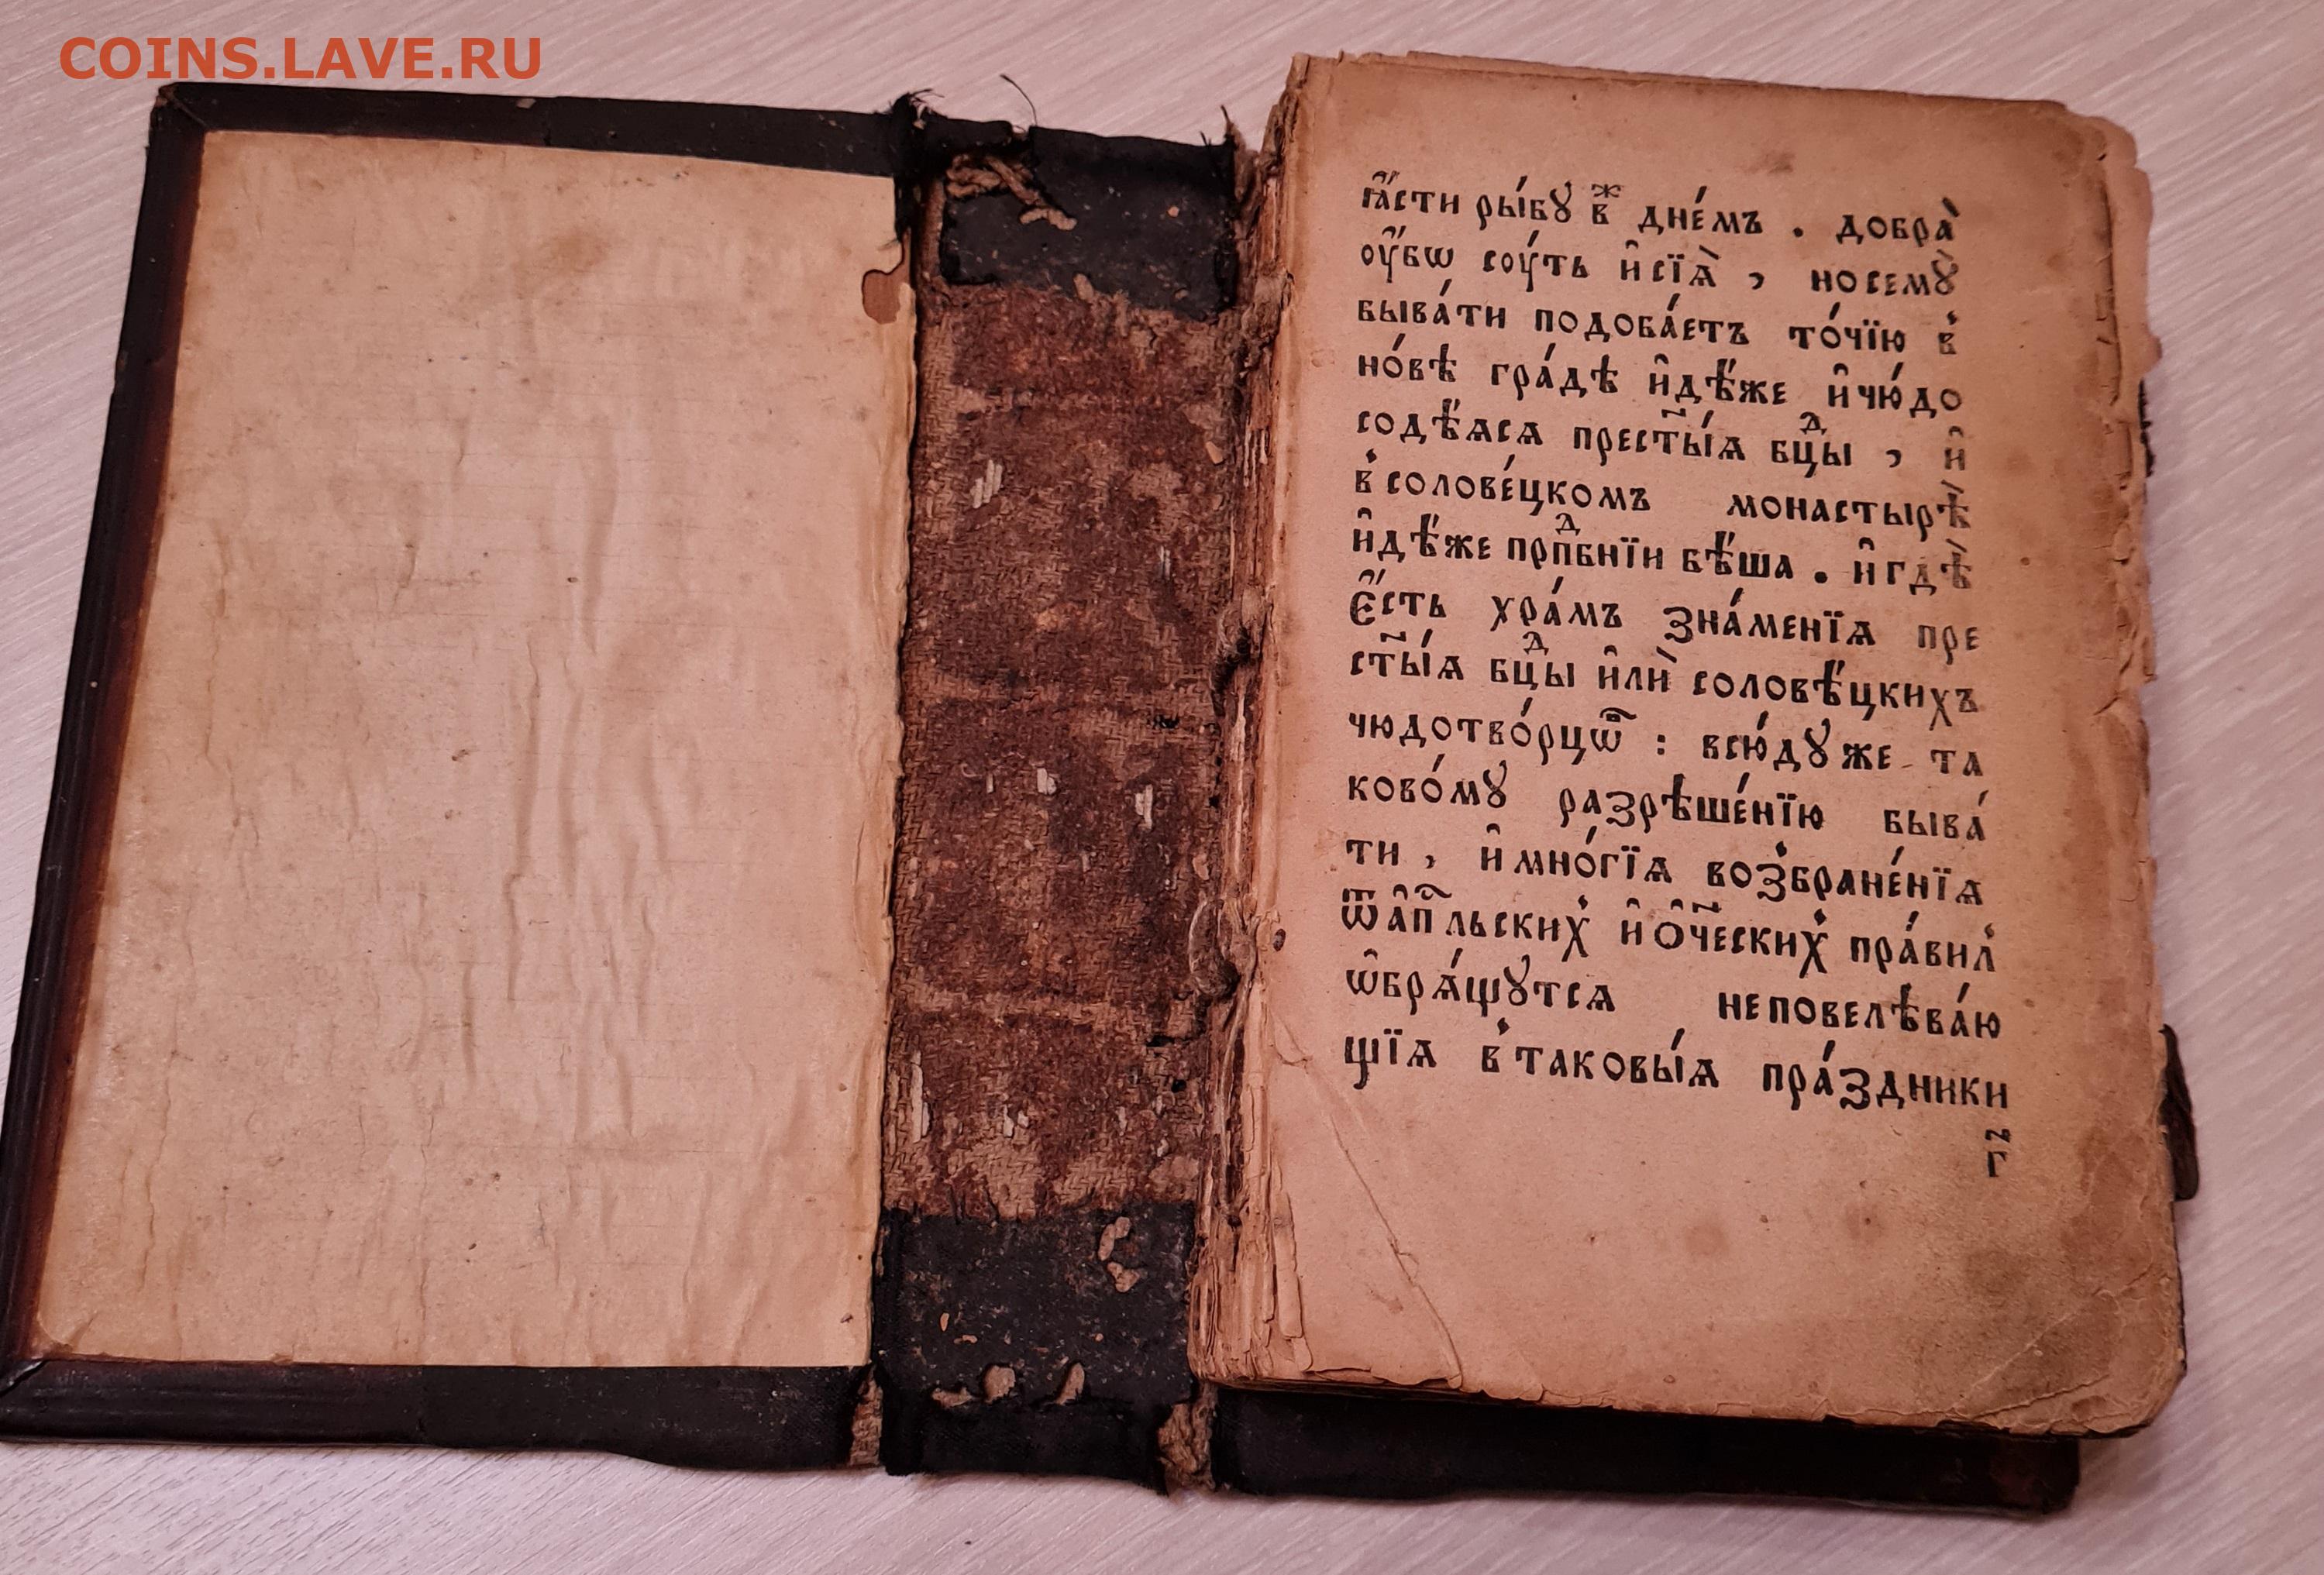 COINS.LAVE.RU
ꙗ҆́сти ры́бꙋ в҃ⷤ дне́мъ . добра̀
ᲂу҆́бѡ сᲂу́ть и҆сїѧ̀ , носемꙋ̀
быва́ти подоба́етъ то́чїю в̾
но́вѣ гра́дѣ и҆дѣ́же и҆чю́до
содѣ́ѧсѧ прест҃ы́ѧ бцⷣы , и҆
в̾солове́цкомъ монастырѣ̀
и҆дѣ́же прпⷣбнїи бѣ́ша . и҆гдѣ̀
є҆́сть хра́мъ зна́менїѧ пре
ст҃ы́ѧ бцⷣы и҆лѝ соловѣ́цкихъ
чюдотво́рцѡⷡ : всю́дꙋже та
ково́мꙋ разрѣше́нїю быва́
ти , и҆мно́гїѧ воз̾бране́нїѧ
ѿа҆п҃льских̾ и҆ѻ҆ч҃еских̾ пра́вил̾
ѡ҆брѧ́щꙋтсѧ неповелѣва́ю
щїѧ в̾таковы́ѧ пра́здники
г҃